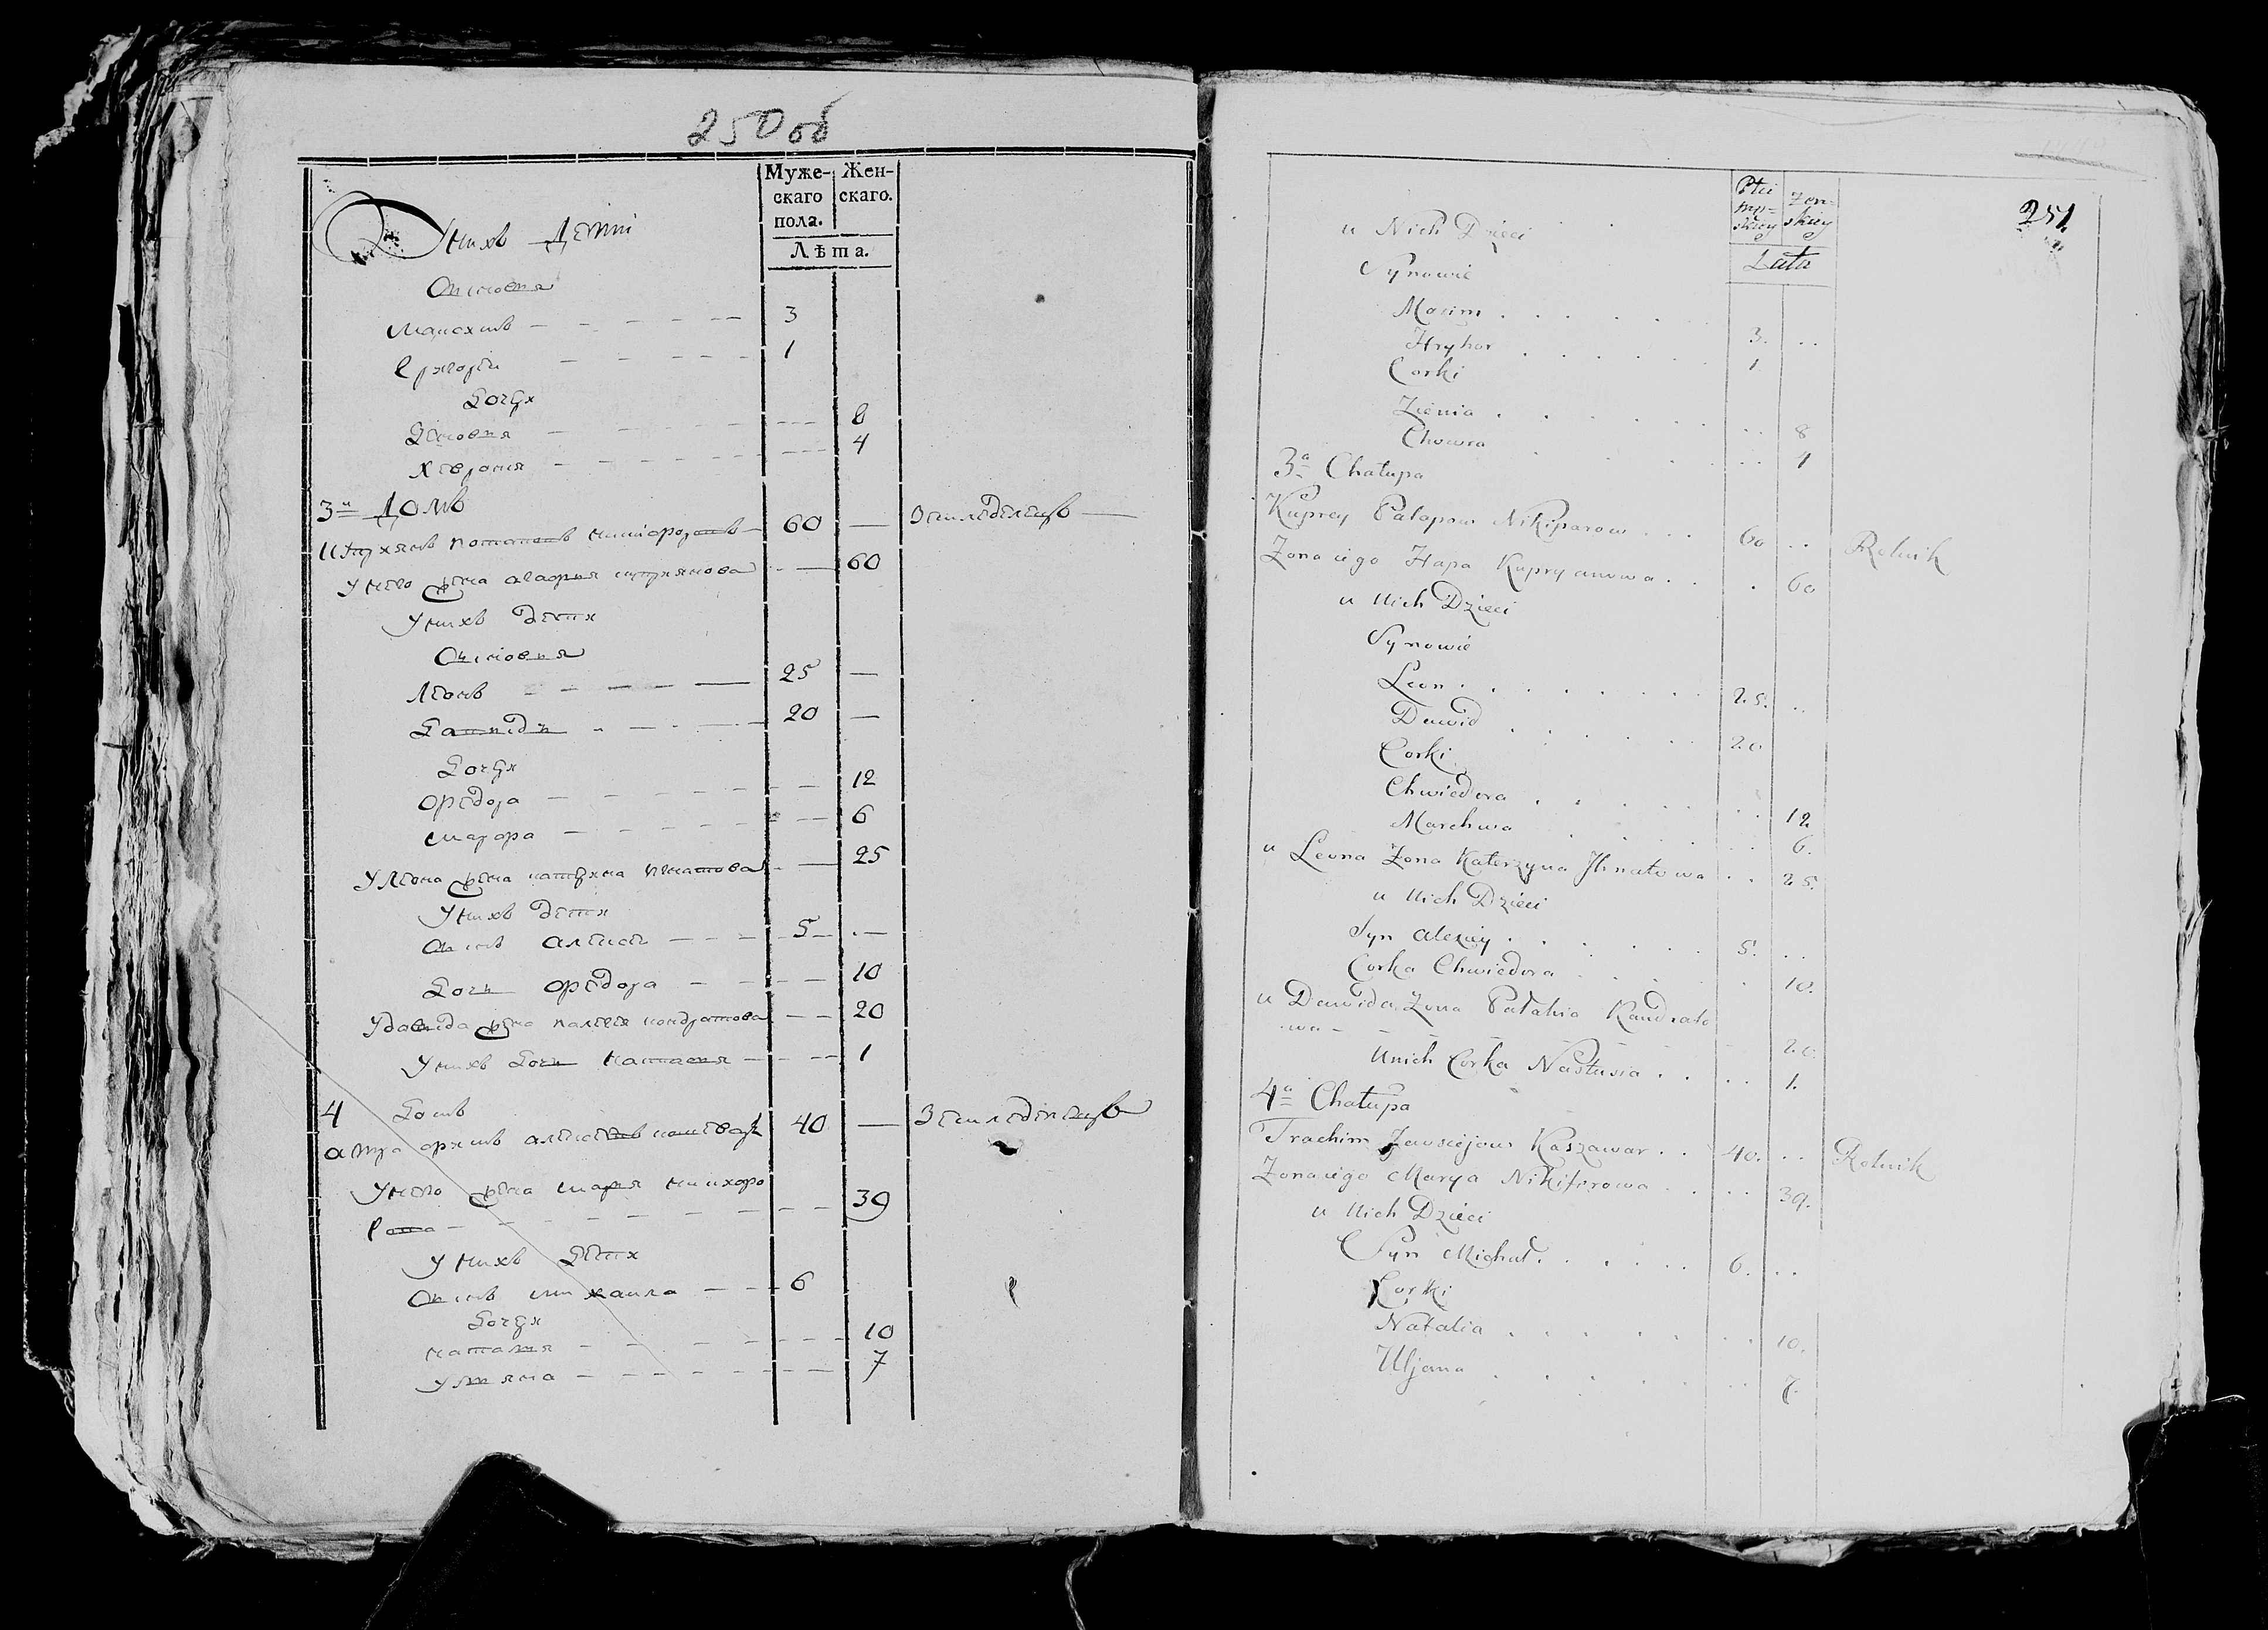 250 об
Муже-
скаго
пола.
Жен-
скаго.
Лѣта.
У нихъ Дети
Сыновья
Максимъ 3
Григорей 1
Дочери
Зеновья 8
Хеврония 4
3й Домъ
Куприянъ Потаповъ Никифоровъ 60 — Земледелецъ
У него жена Агафья Куприянова 60
У нихъ дети
Сыновья
Леонъ 25 —
Давидъ 20 —
Дочери
Феодора 12
Марфа 6
У Леона жена Катерина Игнатова 25
У нихъ дети
Сынъ Алексей 5 —
Дочь Феодора 10
У давида жена Палагея Кондратова 20
У нихъ Дочь Настасья 1
4 Домъ
Трофимъ 40 — Земледелецъ
У него жена Марья Никифо
рова 39
У нихъ Дети
Сынъ Михаила 6
Дочери
Наталья 10
Ульяна 7
251.
Płci
męz=
skiey
Zen=
skiey
Lata
u Nich Dzieci
Synowie
Maxim 3. ..
Hryhor 1
Corki
Zienia .. 8
Chowra .. 4
3a Chałupa
Kuprey Patapow Nikiparow 60 .. Rolnik
Zona iego Hapa Kupryanowa . 60
u Nich Dzieci
Synowie
Leon 25. ..
Dawid 20
Corki
Chwiedora .. 12
Marchwa .. 6.
u Leona Zona Katerzyna Ihnatowa .. 25.
u Nich Dzieci
Syn Alexiey 5. ..
Corka Chwiedora . 10.
u Dawida Zona Pałahia Kandrato
wa - 20.
u nich Corka Nastusia .. 1.
4a Chałupa
Trachim Kaszawar 40. .. Rolnik
Zona iego Marya Nikiforowa .. 39.
u Nich Dzieci
Syn Michał 6. ..
Corki
Natalia .. 10.
Uljana .. 7.